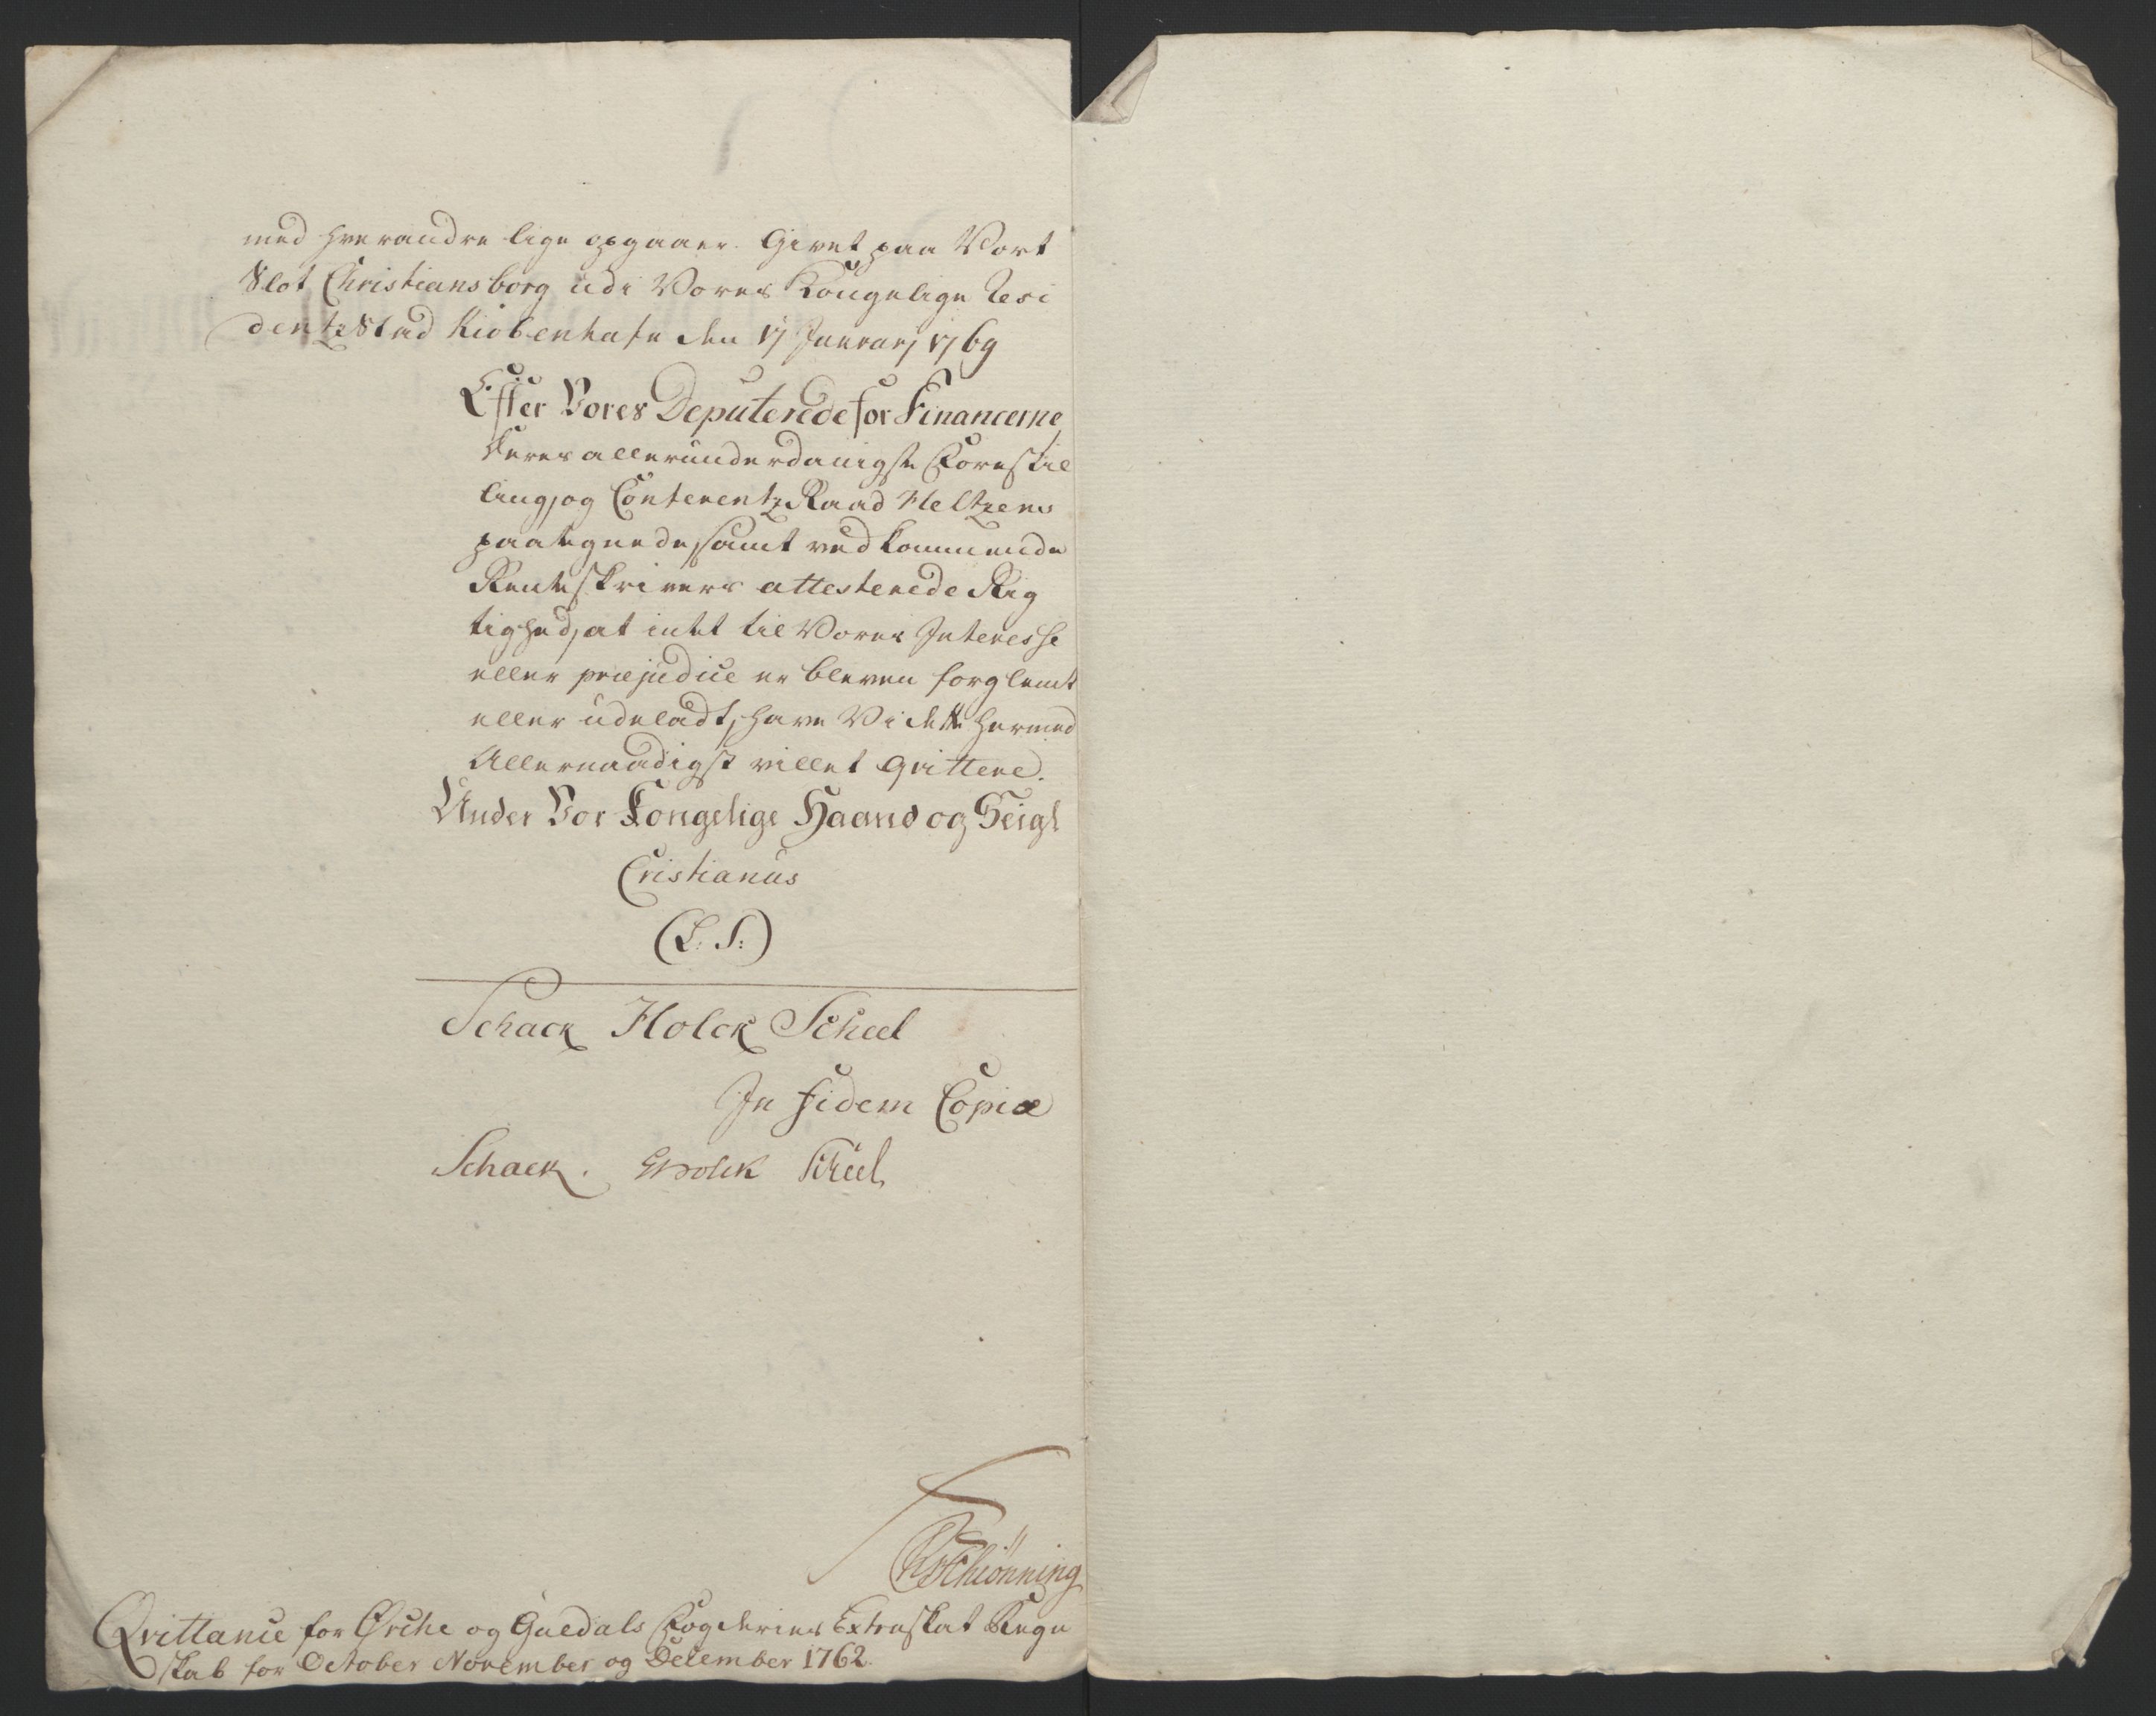 med hverandre lige opgaaer. Givet paa Vort
Slot Christiansborg udi Vores Kongelige Resi
dentz Stad Kiobenhafn den 17 Januarj 1769
Efter Vores Deputerede for Financerne
deres allerunderdanigste Forestil
ling, og Conferentz Raad Heltzens
paategnede, samt vedkommende
Renteskrivers attesterede Rig
tighed, at intet til Vores Interesse
eller præjudice er bleven forglemt
eller udeladt, have Vi dette hermed
Allernaadigst villet qvittere.
Under Vor Kongelige Haand og Seigl
Cristianus
(L: S:)
Schack Holck Scheel
In fidem Copiæ
Schack. Holck Scheel
Schiønning
Qvittance for Ørche og Guedals Fogderies Extraskat Regn
skab for October November og December 1762.